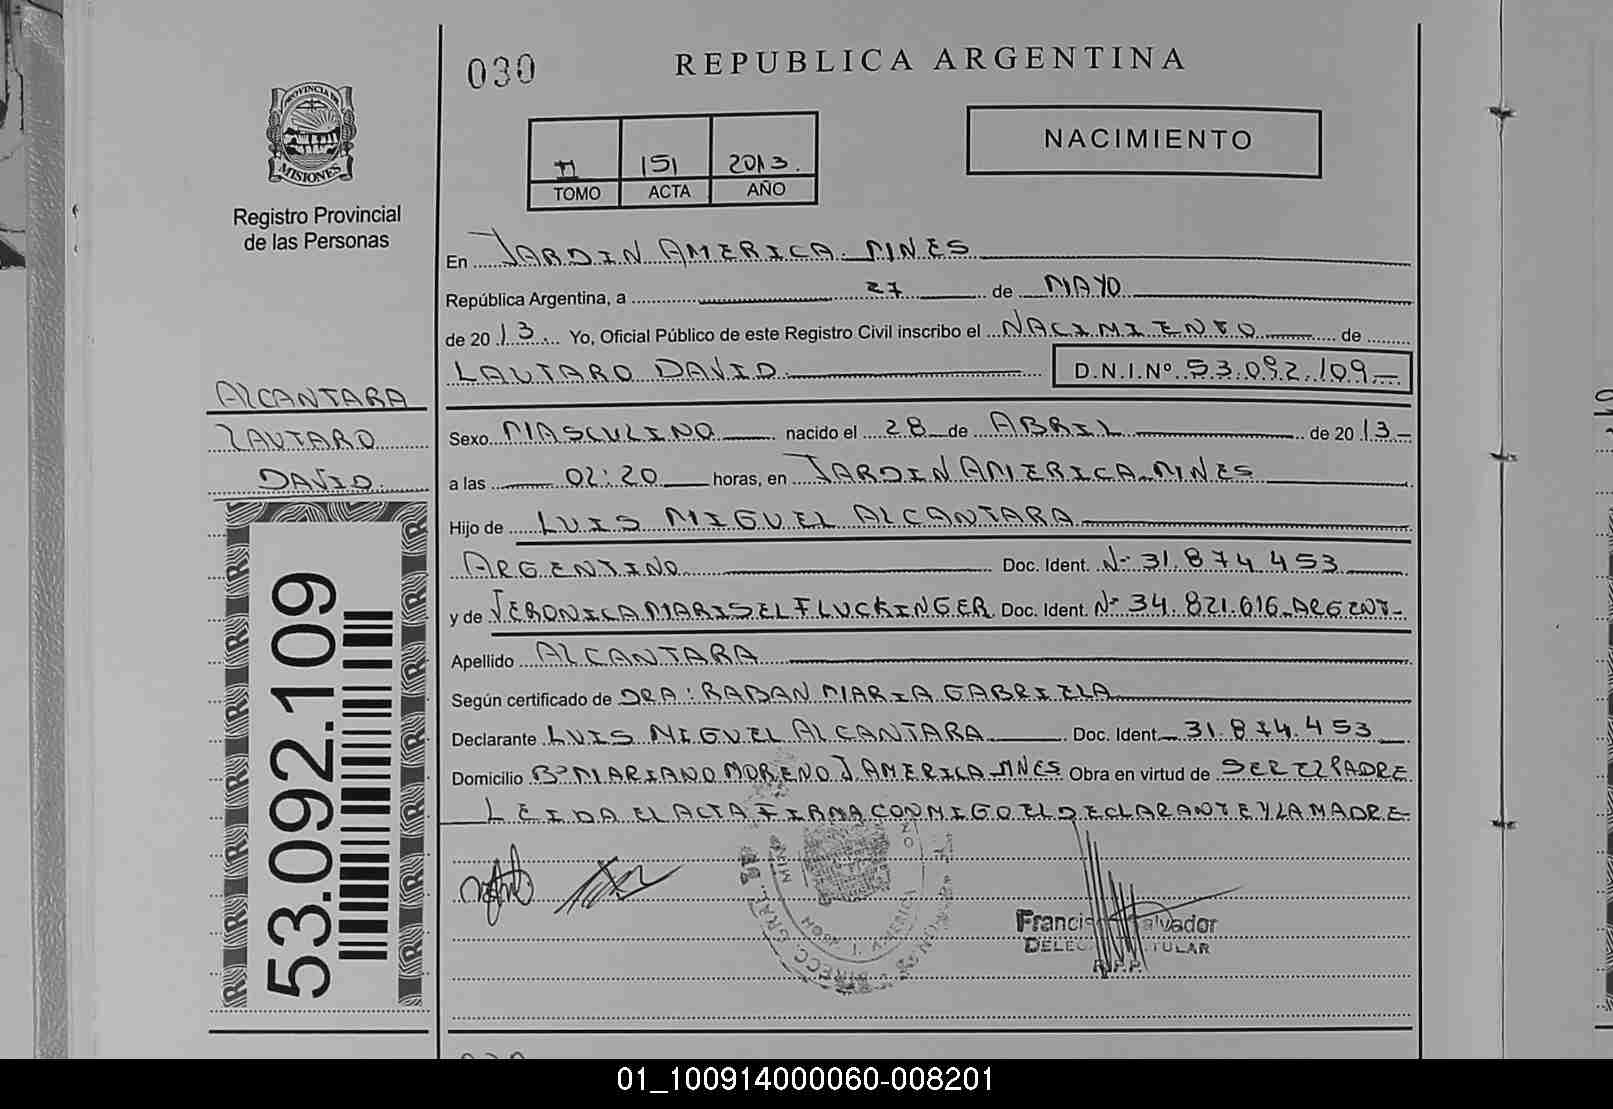 030
REPUBLICA ARGENTINA
PROVINCIA DE
MISIONES
Registro Provincial
de las Personas
II 151 2013.
TOMO ACTA AÑO
NACIMIENTO
En JARDIN AMERICA - MNES
República Argentina, a 27 de MAYO
de 2013 Yo, Oficial Público de este Registro Civil inscribo el NACIMIENTO de
LAUTARO DAVID D.N.I.Nº 53.092.109
ALCANTARA
LAUTARO
DAVID
Sexo MASCULINO nacido el 28 de ABRIL de 2013
a las 02:20 horas, en JARDIN AMERICA - MNES
Hijo de LUIS MIGUEL ALCANTARA
ARGENTINO Doc. Ident. Nº 31.874.453
y de VERONICA MARISEL FLUCKINGER Doc. Ident. Nº 34.821.616 - ARGENT-
Apellido ALCANTARA
Según certificado de DRA: BADAN MARIA GABRIELA
Declarante LUIS MIGUEL ALCANTARA Doc. Ident. 31.874.453
Domicilio Bº MARIANO MORENO J. AMERICA - MNES Obra en virtud de SER EL PADRE
LEIDA EL ACTA FIRMA CONMIGO EL DECLARANTE Y LA MADRE
53.092.109
DIRECC. GRAL.
J. AMERICA
R.P.P.
01_100914000060-008201